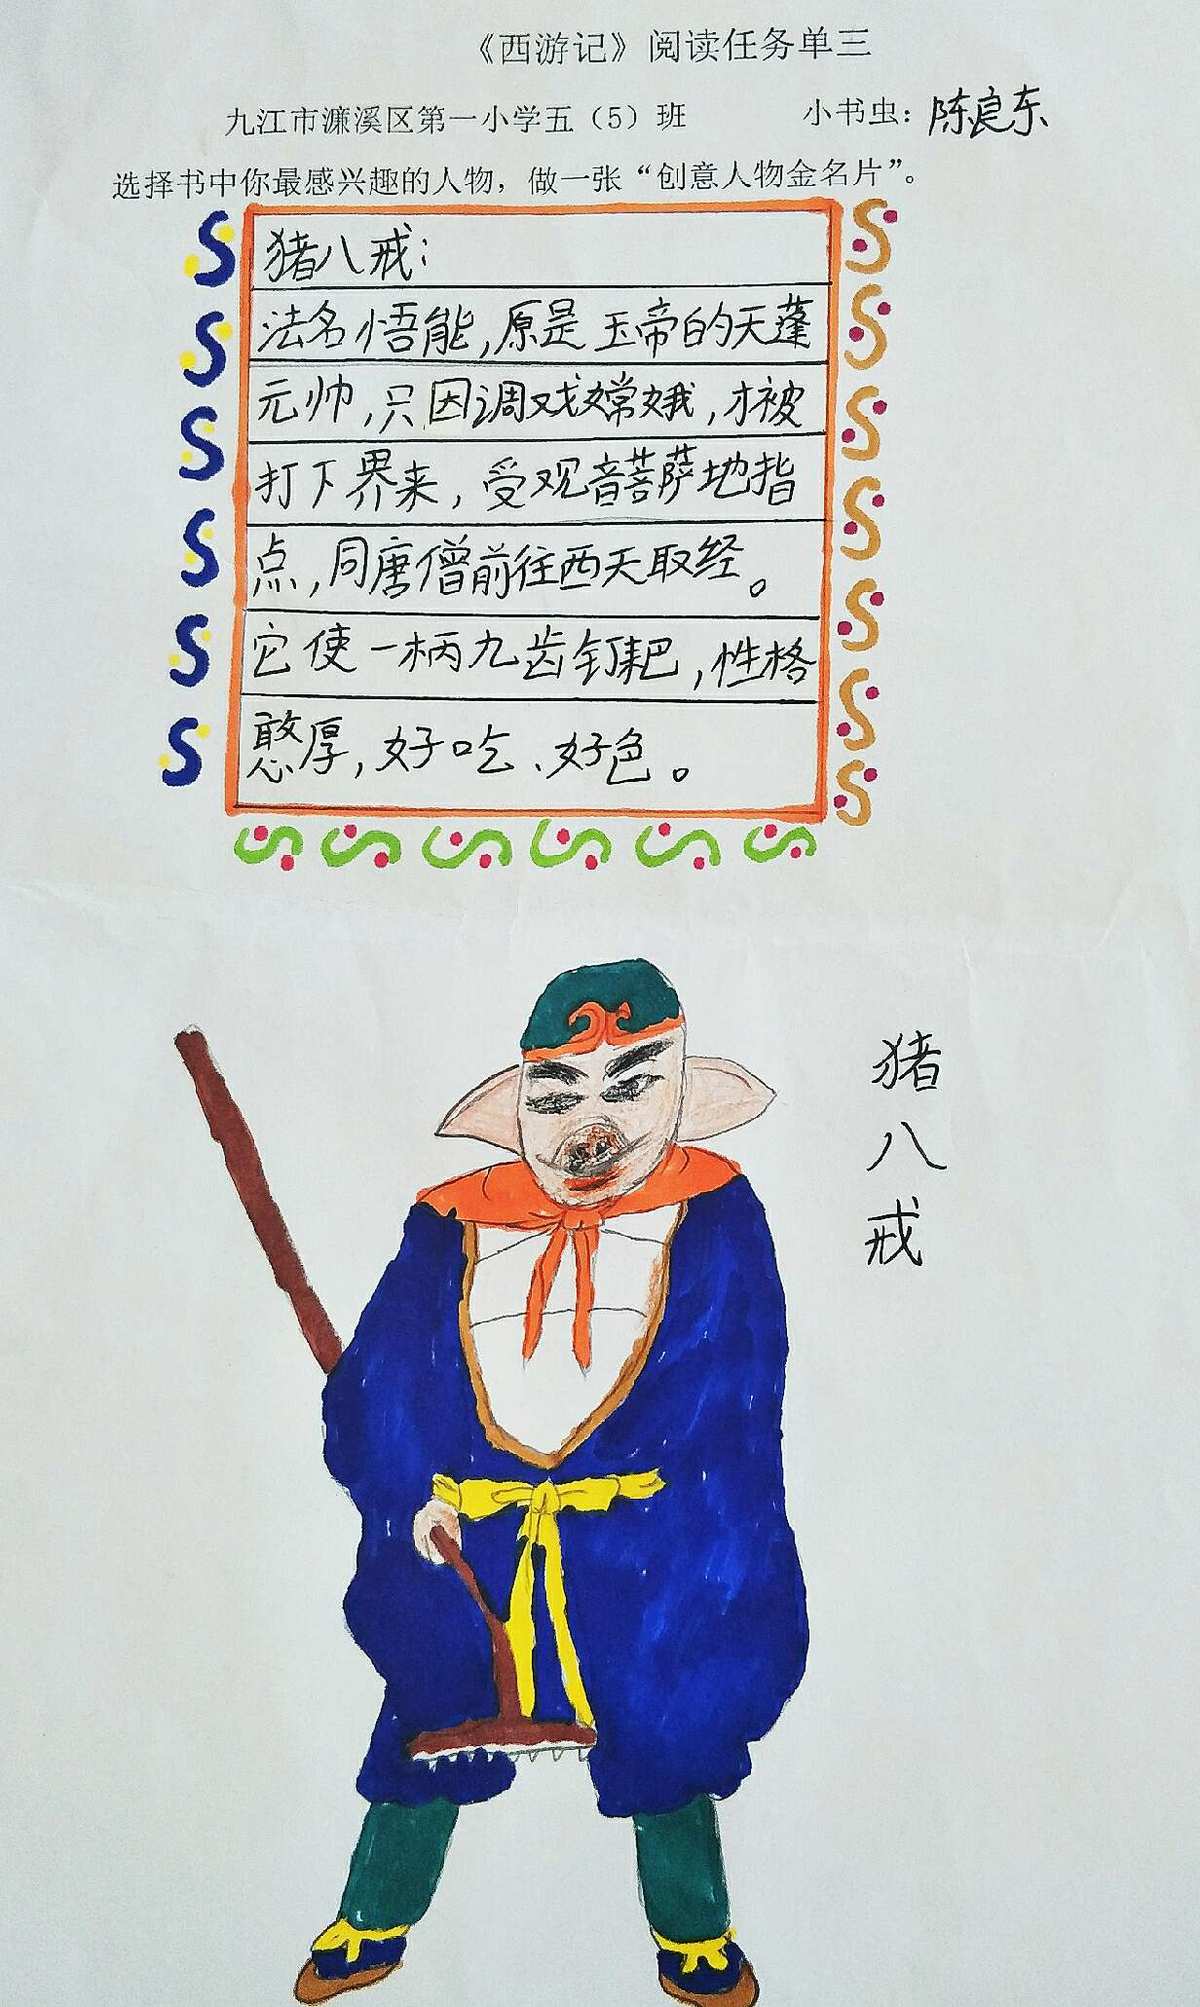 《西游记》阅读任务单三
九江市濂溪区第一小学五（5）班 小书虫：陈良东
选择书中你最感兴趣的人物，做一张“创意人物金名片”。
猪八戒：
法名悟能,原是玉帝的天蓬
元帅,只因调戏嫦娥,才被
打下界来,受观音菩萨地指
点,同唐僧前往西天取经。
它使一柄九齿钉耙,性格
憨厚,好吃、好色。
猪
八
戒